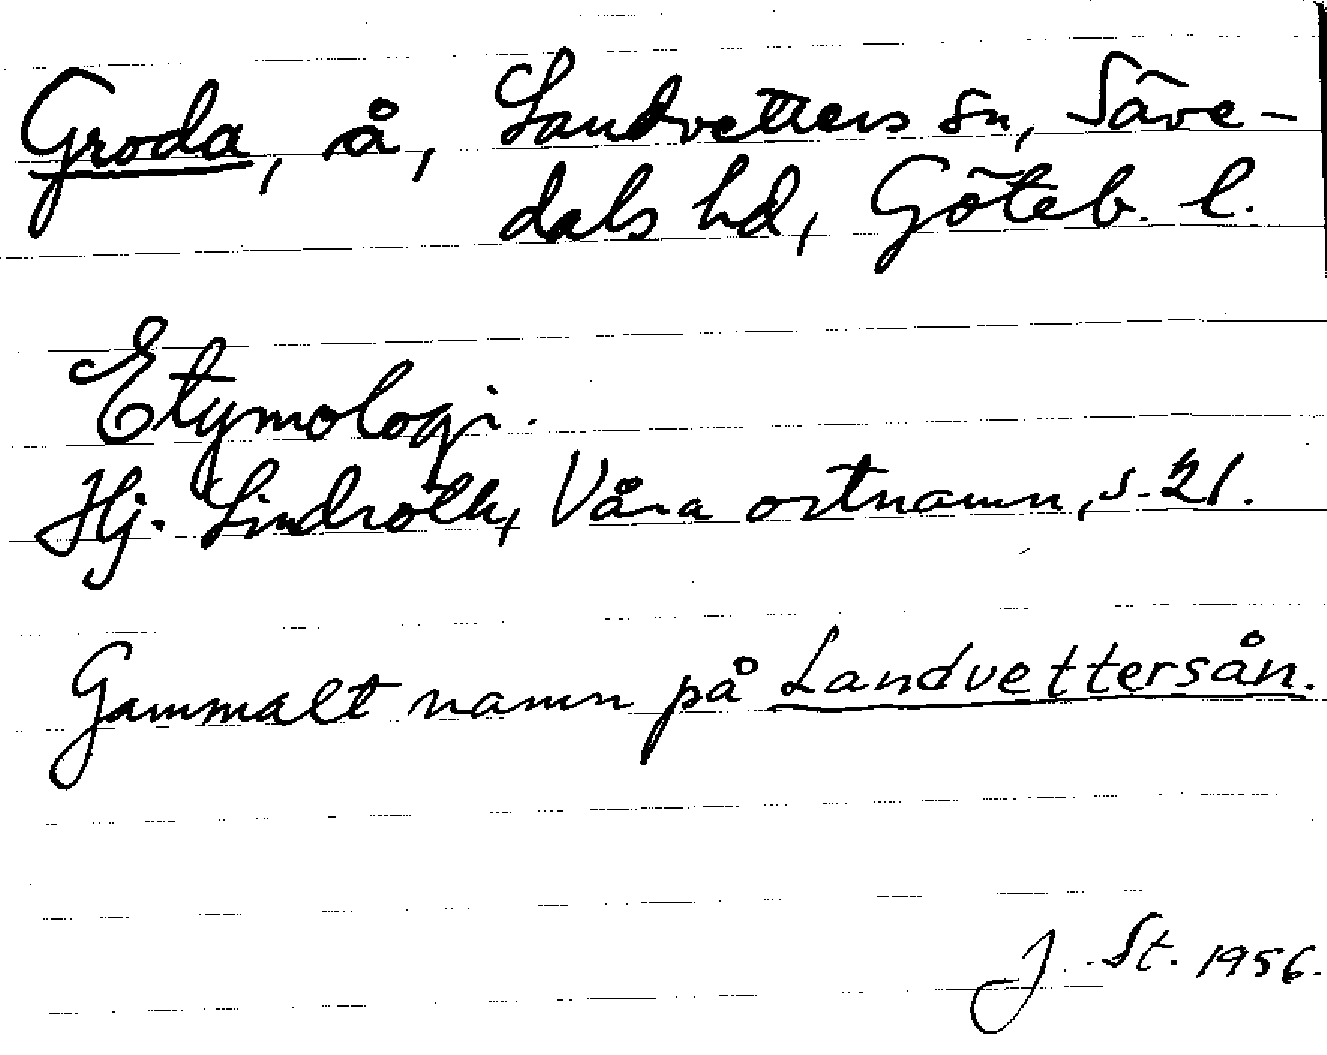 Groda, å, Landvetters sn, Säve-
dals hd, Göteb. l.
Etymologi.
Hj. Lindroth, Våra ortnamn, s. 21.
Gammalt namn på Landvettersån.
J. St. 1956.